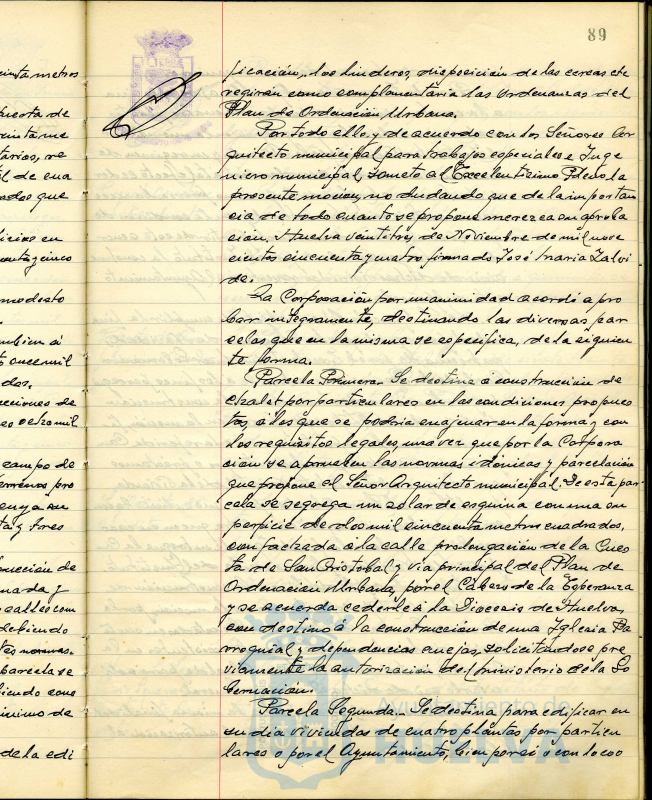 89
ficación, los linderos, disposición de las cercas etc
regirán como complementaria las ordenanzas del
Plan de Ordenación Urbana.
Por todo ello, y de acuerdo con los Señores Ar
quitecto municipal para trabajos especiales e Inge
niero municipal, someto al Excelentísimo Pleno la
presente moción, no dudando que de la importan
cia de todo cuanto se propone merezca su aproba
ción. Huelva veintitres de Noviembre de mil nove
cientos cincuenta y cuatro firmado José María Zalvi
de.
La Corporación por unanimidad acordó apro
bar integramente, destinando las diversas par
celas que en la misma se especifica, de la siguien
te forma.
Parcela Primera. Se destina a construcción de
chalet por particulares en las condiciones propues
tas, a los que se podria enajenar en la forma y con
los requisitos legales, una vez que por la Corpora
ción se aprueben las normas idóneas y parcelación
que propone el Señor Arquitecto municipal. De esta par
cela se segrega un solar de esquina con una su
perficie de dos mil cincuenta metros cuadrados,
con fachada a la calle prolongación de la Cues
ta de San Cristobal y via principal del Plan de
Ordenación Urbana, por el Cabezo de la Esperanza
y se acuerda cederle á la Diocesis de Huelva,
con destino á la construcción de una Iglesia Pa
rroquial y dependencias anejas, solicitándose pre
viamente la autorización del Ministerio de la Go
bernación.
Parcela Segunda. Se destina para edificar en
su dia viviendas de cuatro plantas por particu
lares o por el Ayuntamiento, bien por sí o con la coo